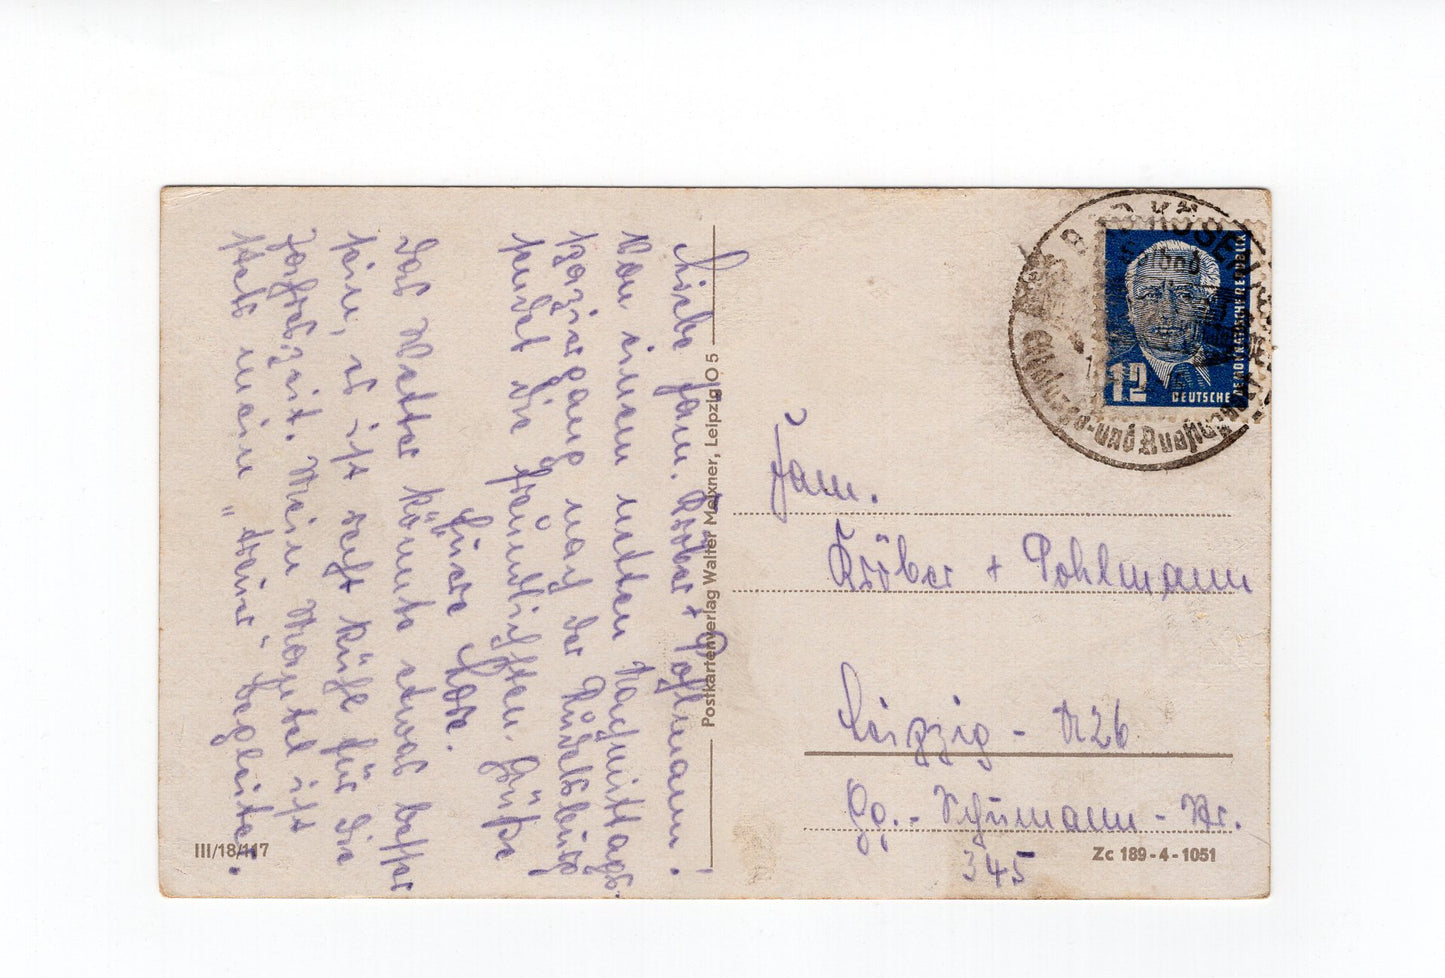 Liebe Fam. Kröber + Pohlmann!
Von einem netten Nachmittags-
spaziergang nach der Rudelsburg
sendet die freundlichsten Grüße
Eure Lore.
Das Wetter könnte etwas besser
sein, es ist recht kühl für die
Jahreszeit. Mein Mantel ist
stets mein „treuer" Begleiter.
III/18/117
Postkartenverlag Walter Meixner, Leipzig O 5
BAD KÖSEN
12
DEUTSCHE
DEMOKRATISCHE REPUBLIK
Fam.
Kröber + Pohlmann
Leipzig - N26
Gg.-Schumann-Str.
345
Zc 189-4-1051